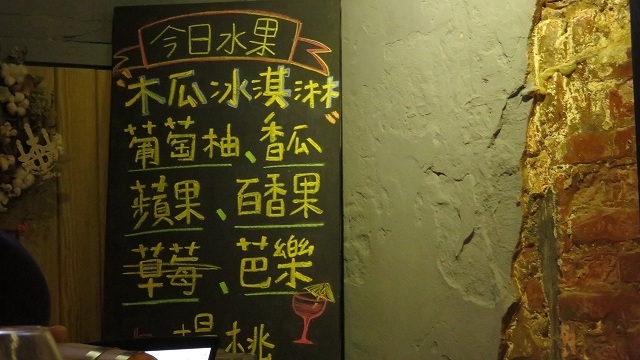 今日水果
"木瓜冰淇淋"
葡萄柚、香瓜
蘋果、百香果
草莓、芭樂
楊桃